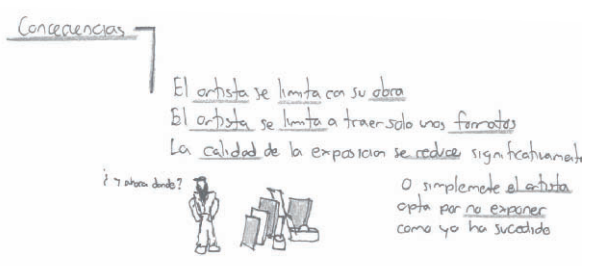 Concecuencias
El artista se limita con su obra
El artista se limita a traer solo unos formatos
La calidad de la exposicion se reduce significativament
¿Y ahora donde?
O simplemete el artista
opta por no exponer
como ya ha sucedido